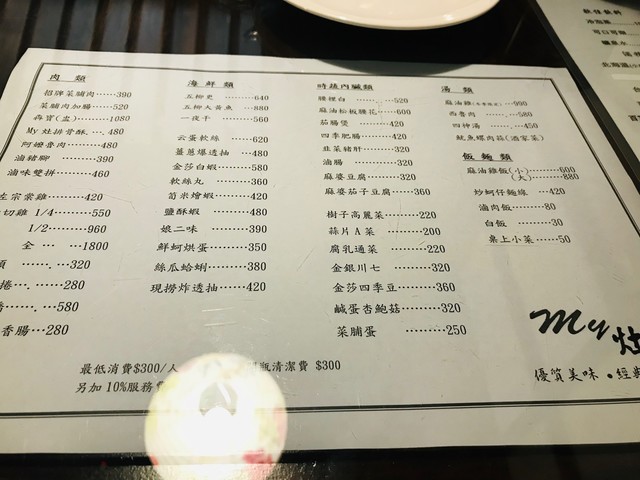 肉 類
招牌菜脯肉……390
菜脯肉加腸……520
犇寶(盅)……1080
My 灶排骨酥… 480
阿嬤魯肉……480
滷豬腳 ……390
滷味雙拼……460
左宗棠雞……420
切雞 1/4……550
1/2……960
全 ……1800
……320
捲……280
……580
香腸…280
海 鮮 類
五柳 ……640
五柳大黃魚 …880
一夜干 ……560
云蛋軟絲 ……620
薑蔥爆透抽 …480
金莎白蝦……580
軟絲丸 ……360
筍米燴蝦……420
鹽酥蝦 ……480
娘二味 ……390
鮮蚵烘蛋……350
絲瓜蛤蜊……380
現撈炸透抽……420
時蔬內臟類
腰裡白 ……520
麻油松板腰花……600
茄腸煲 ……420
四季肥腸……420
韭菜豬肝……320
滷腸 ……320
麻婆豆腐……320
麻婆茄子豆腐…360
樹子高麗菜……220
蒜片A菜 ……200
腐乳通菜 ……220
金銀川七 ……320
金莎四季豆……360
鹹蛋杏鮑菇……320
菜脯蛋 ……250
湯 類
麻油雞 ……900
西魯肉 ……580
四神湯 ……450
魷魚螺肉蒜(酒家菜)
飯 麵 類
麻油雞飯(小)……600
(大)……880
炒蚵仔麵線 …420
滷肉飯……80
白飯 ……30
桌上小菜……50
最低消費$300/人
瓶清潔費 $300
另加 10%服務
My 灶
優質美味.經典